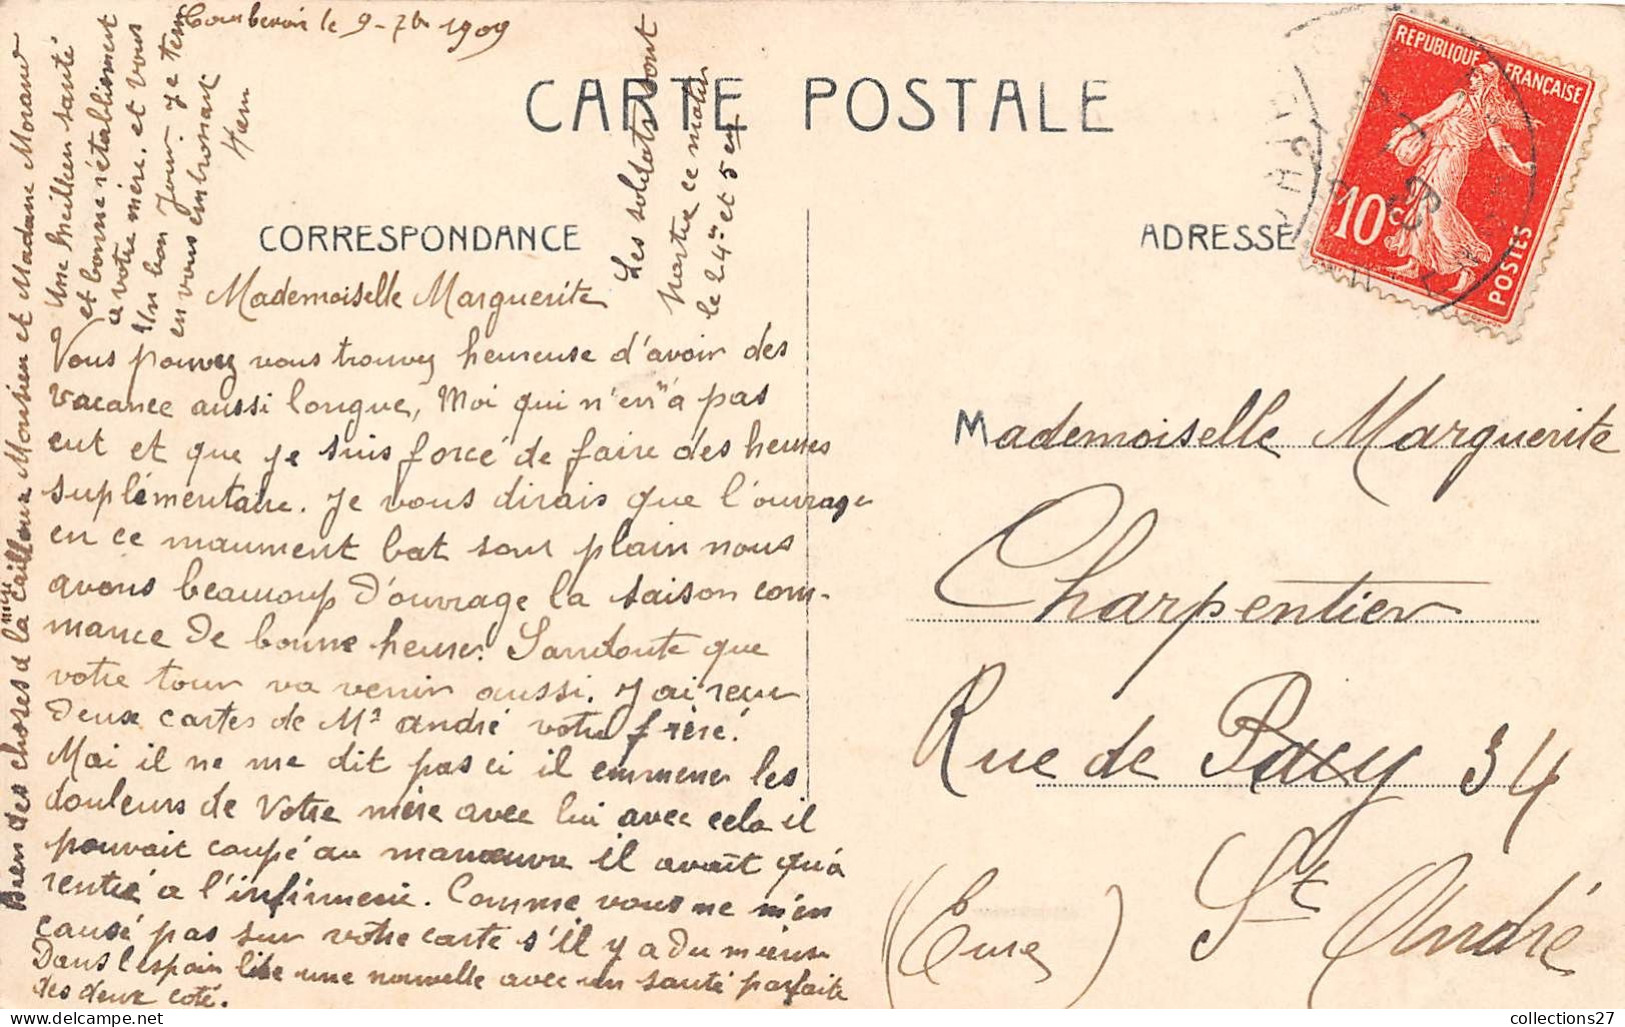 Courbevoie le 9-7bre 1909
CARTE POSTALE
CORRESPONDANCE
ADRESSE
REPUBLIQUE FRANÇAISE
10c
POSTES
Mademoiselle Marguerite
Vous pouvez vous trouvez heureuse d'avoir des
vacance aussi longue, Moi qui n'en "n'a pas
eut et que je suis forcé de faire des heures
suplémentaire. Je vous dirais que l'ouvrage
en ce maument bat sont plain nous
avons beaucoup d'ouvrage la saison com-
mance de bonne heure. Sandoute que
votre tour va venir aussi. J'ai recu
deux cartes de Mr andré votre frère.
Mai il ne me dit pas ci il emmener les
douleurs de Votre mère avec lui avec cela il
pouvait coupé au manœuvre il avait qu'à
rentré a l'infirmerie. Comme vous ne m'en
causé pas sur votre carte s'il y a du mieux
Dans l'espoir lise une nouvelle avec un santé parfaite
des deux coté.
Bien des choses a la mère Cailloux Monsieu et Madame Morand
Une Meilleu santé
et bonne rétablisment
a votre mère. et vous
Un bon Jour. Je term
en vous embrasant
Les soldats sont
partie ce matin
le 24me et 5em
Mademoiselle Marguerite
Charpentier
Rue de Pacy 34
St André
(Eure)
collections27